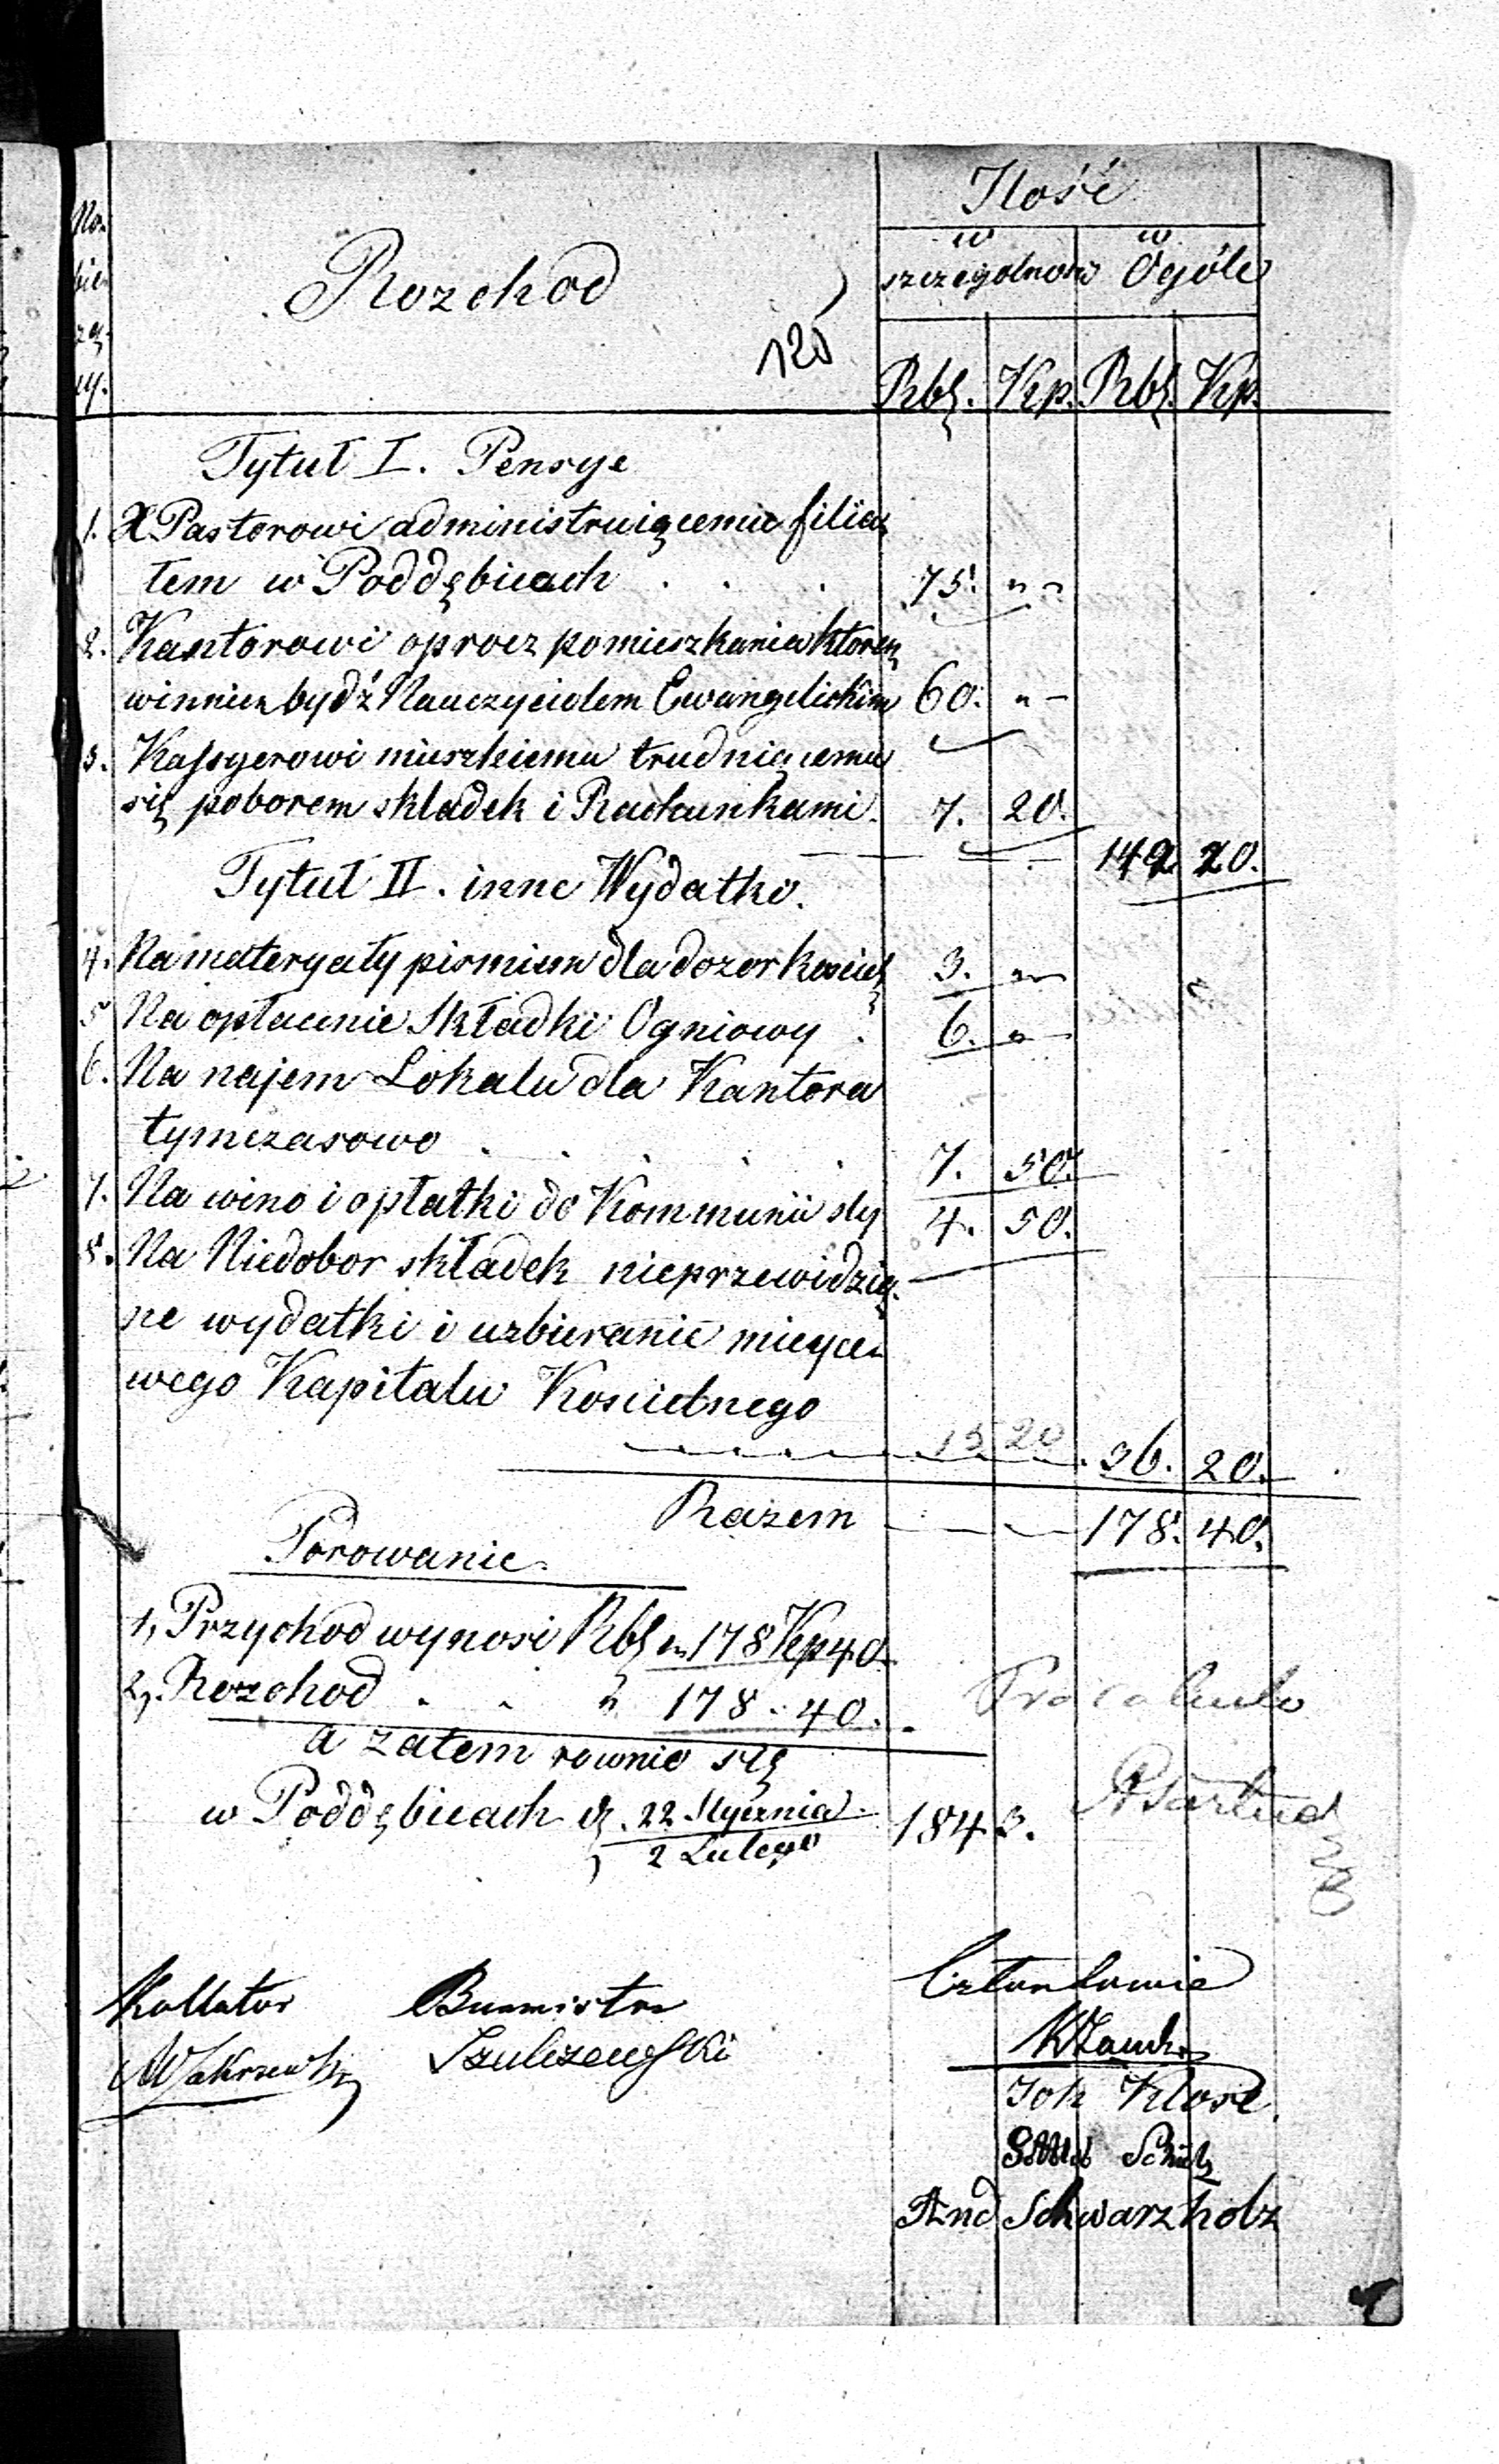 No.
bie
żą
cy.
Rozchod
120
Ilość
w szczegolności
w Ogóle
Rbs. Kp. Rbs. Kp.
Tytuł I. Pensye
1. X Pastorowi administruiącemu filia
łem w Poddębicach . . . 75. " "
2. Kantorowi oprocz pomieszkania ktoren
winnien bydź Nauczycielem Ewangelickim 60. " -
3. Kassyerowi mieszkiemu trudniącemu
się poborem składek i Rachunkami. 7. 20.
142 20.
Tytuł II. inne Wydatki.
4. Na materyały pismien dla dozor kosciel 3. "
5 Na opłacenie Składki Ogniowy . 6. "
6. Na najem Lokalu dla Kantora
tymczasowo . . . . . 7. 50.
7. Na wino i opłatki do Kommunii sty 4. 50.
8. Na Niedobor składek nieprzewidzia
ne wydatki i uzbieranie mieysco
wego Kapitału Koscielnego
15 20 36. 20.
Razem 178. 40.
Porowanie
1, Przychod wynosi Rbs. 178 Kp 40.
2, Rozchod . . " 178 . 40.
a zatem rownie się
w Poddębicach d. 22 Stycznia 1843.
2 Lutego
Pro calculo
Kollator Burmistrz Członkowie
Zakrzewski Szulczewski
Joh Klose.
Gottlieb Schulz
And Schwarzholz